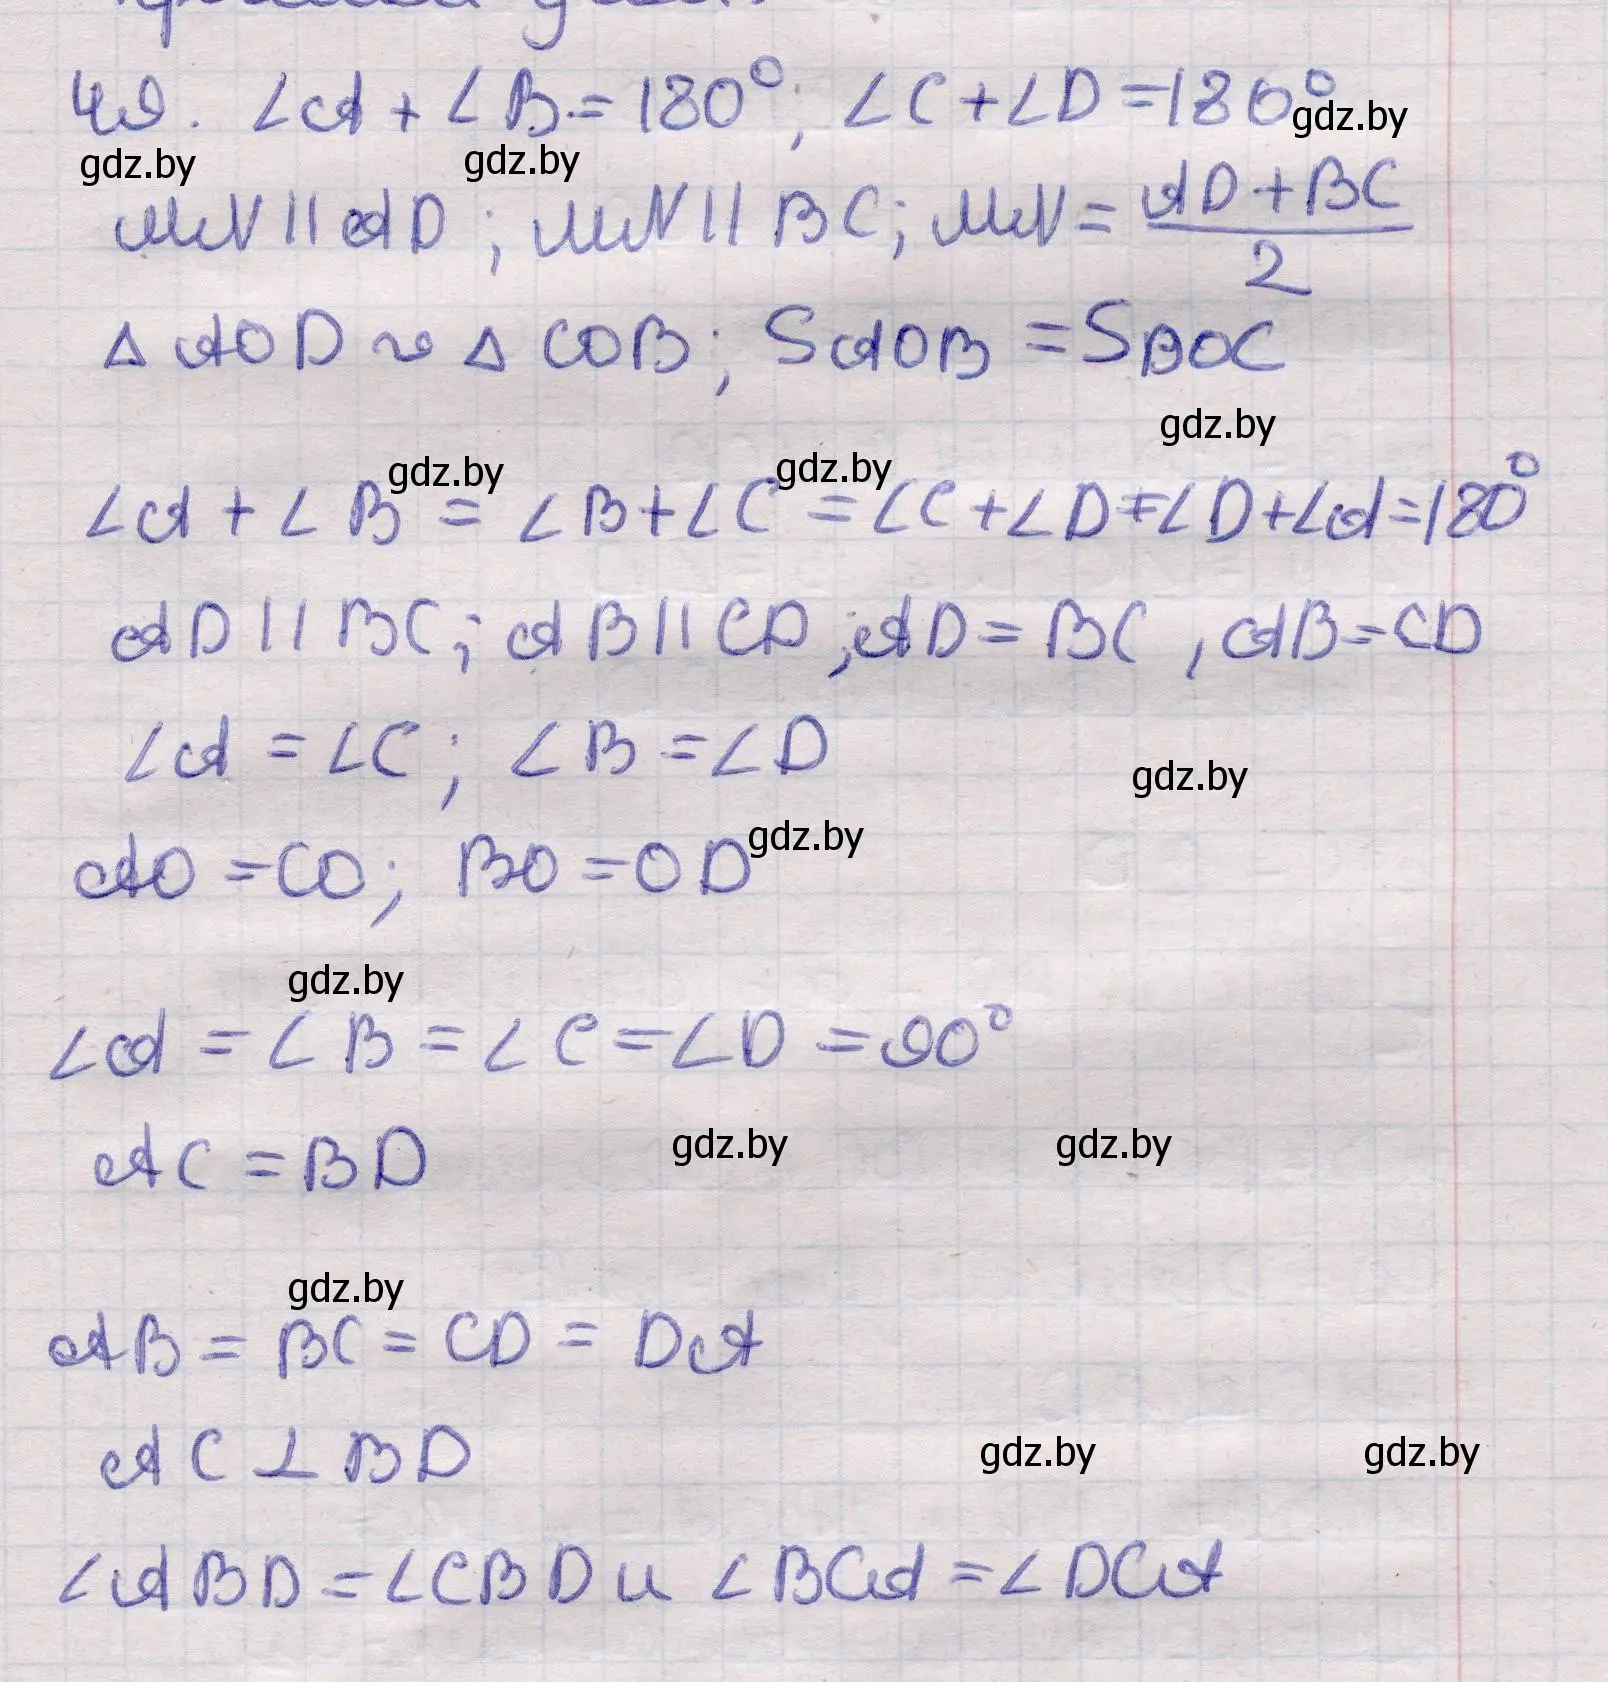 49. ∠A + ∠B = 180°; ∠C + ∠D = 180°
gdz.by gdz.by gdz.by
MN || AD; MN || BC; MN = \frac{AD + BC}{2}
△ AOD ~ △ COB; S AOB = S BOC
gdz.by
gdz.by gdz.by
∠A + ∠B = ∠B + ∠C = ∠C + ∠D = ∠D + ∠A = 180°
AD || BC; AB || CD; AD = BC, AB = CD
∠A = ∠C; ∠B = ∠D
gdz.by
AO = CO; BO = OD
gdz.by
gdz.by
∠A = ∠B = ∠C = ∠D = 90°
AC = BD
gdz.by gdz.by
gdz.by
AB = BC = CD = DA
AC ⊥ BD
gdz.by gdz.by
∠ABD = ∠CBD и ∠BCA = ∠DCA